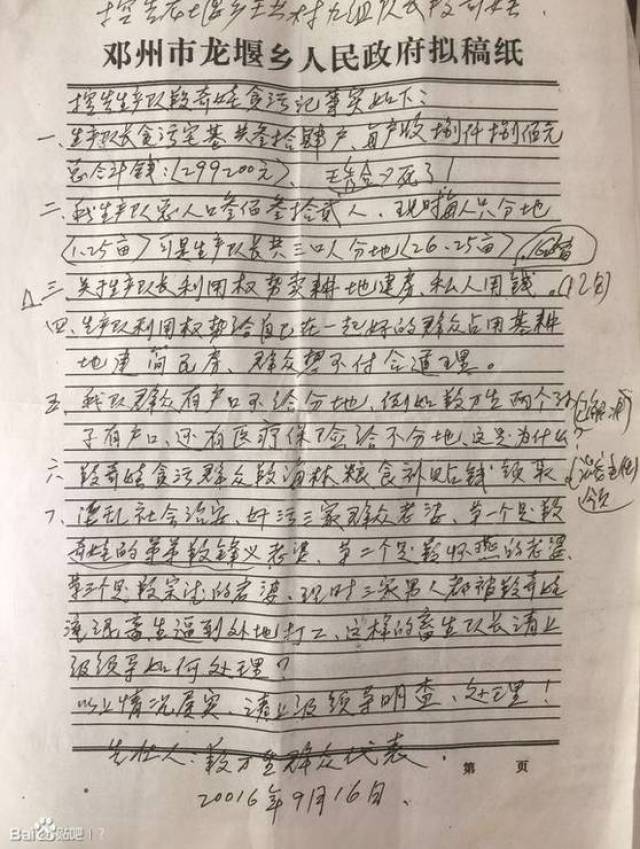 邓州市龙堰乡人民政府拟稿纸
控告生产队段奇娃贪污记事实如下：
一、生产队长贪污宅基共叁拾肆户，每户收捌仟捌佰元
总合计钱：(299200元)、
二、我生产队总人口叁佰叁拾贰人，现时每人只分地
(1.25亩)可是生产队长共三口人分地(26.25亩)
三、关于生产队长利用权势卖耕地建房、私人用钱。(12户)
四、生产队利用权势给自己在一起好的群众占用基耕
地建简民房、群众想不付合道理。
五、我队群众有户口不给分地，例如段方生两个孙
子有户口，还有医疗保险给不分地，这是为什么？
六、段奇娃贪污群众段海林粮食补贴钱领取
7、混乱社会治安、奸污三家群众老婆、第一个是段
奇娃的弟弟段锋义老婆、第二个是段怀燕的老婆
第三个是段宗法的老婆、现时三家男人都被段奇娃
流氓畜生逼到外地打工，这样的畜生队长请上
级领导如何处理？
以上情况属实，请上级领导明查、处理！
告状人：段方生群众代表.
第 页
20016年9月16日.
Baidu贴吧